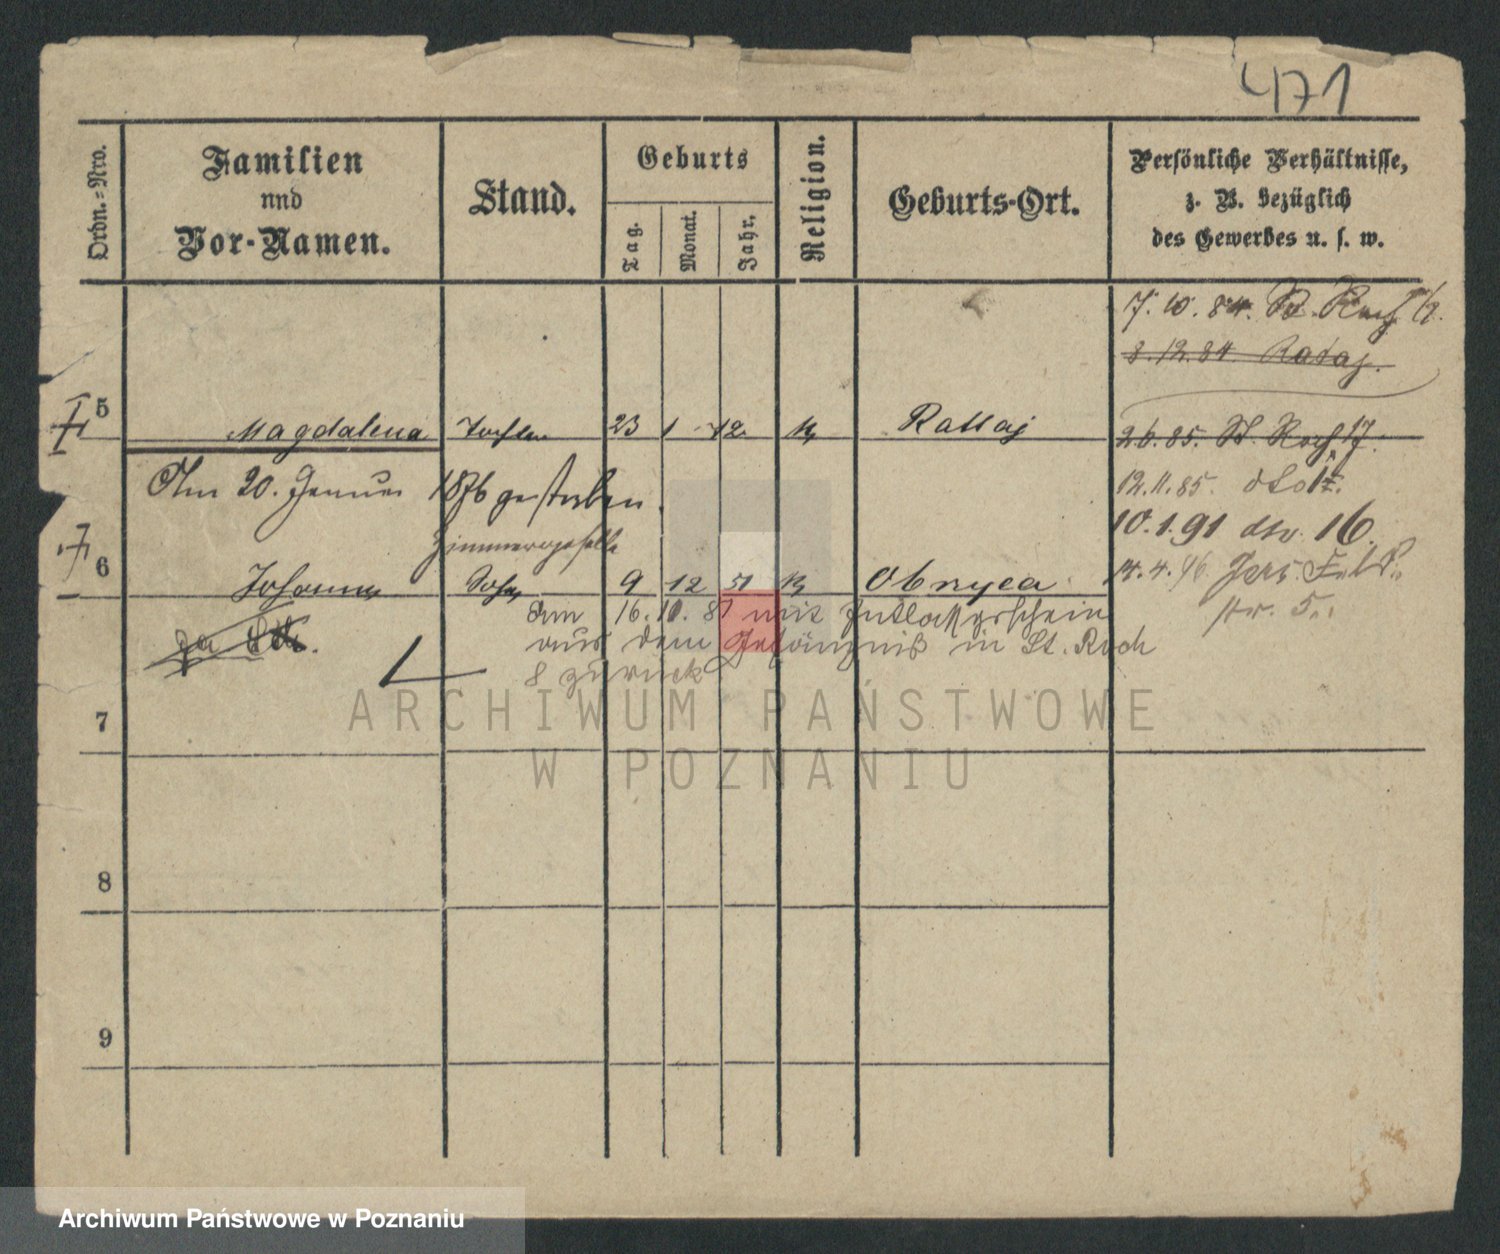 471
Ordn.=Nro.
Familien
und
Vor-Namen.
Stand.
Geburts
Tag.
Monat.
Jahr.
Religion.
Geburts-Ort.
Persönliche Verhältnisse,
z. B. bezüglich
des Gewerbes u. s. w.
7. 10. 84. St. Roch
8. 12. 84 Rataj.
5 Magdalena Tochter 23 1 72 K Rattaj
26. 85. St. Roch 17.
Am 20. Januar 1876 gestorben.
12. 11. 85.
10. 1. 91 16.
Zimmergeselle
6 Johann Sohn 9 12 51 K Obnyca
14. 4. 96.
str. 5.
am 16. 10. 87 mit Entlassgsschein
aus dem Gefängniß in St. Roch
8 zurück
7
8
9
ARCHIWUM PAŃSTWOWE
W POZNANIU
Archiwum Państwowe w Poznaniu